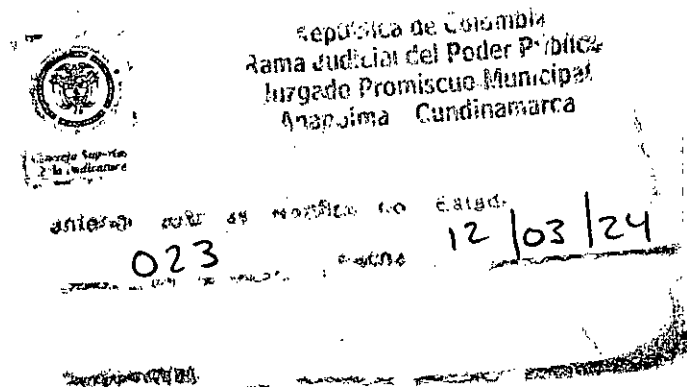 República de Colombia
Rama Judicial del Poder Público
Juzgado Promiscuo Municipal
Anapoima Cundinamarca
Consejo Superior
de la Judicatura
anterior auto se notifica en Estado
023 Fecha 12/03/24